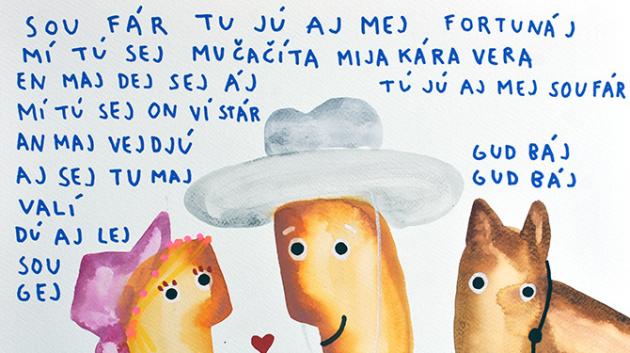 SOU FÁR TU JÚ AJ MEJ FORTUNÁJ
MÍ TÚ SEJ MUČAČÍTA MIJA KÁRA VERA
EN MAJ DEJ SEJ ÁJ TÚ JÚ AJ MEJ SOU FÁR
MÍ TÚ SEJ ON VÍ STÁR
AN MAJ VEJ DJÚ
AJ SEJ TU MAJ
VALÍ
DÚ AJ LEJ
SOU
GEJ
GUD BÁJ
GUD BÁJ